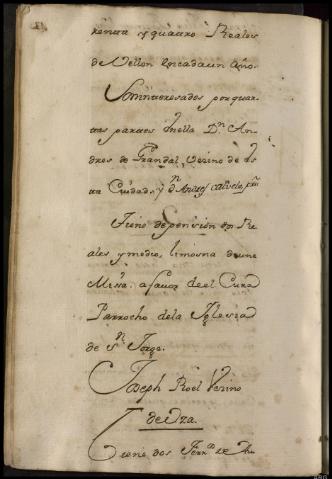 renta y quatro Reales
de Vellon en cada un año.
Son interesados por quar-
tas partes en ella Dn. An-
dres de Grandal, Vezino de es-
ta Ciudad, y dn Andres
Tiene de pension dos Re-
ales y medio, limosna de una
Missa a favor de el Cura
Parrocho de la Iglesia
de Sn. Jorge.
Joseph Roel Vezino
de Oza.
Tiene dos Ferrs. de